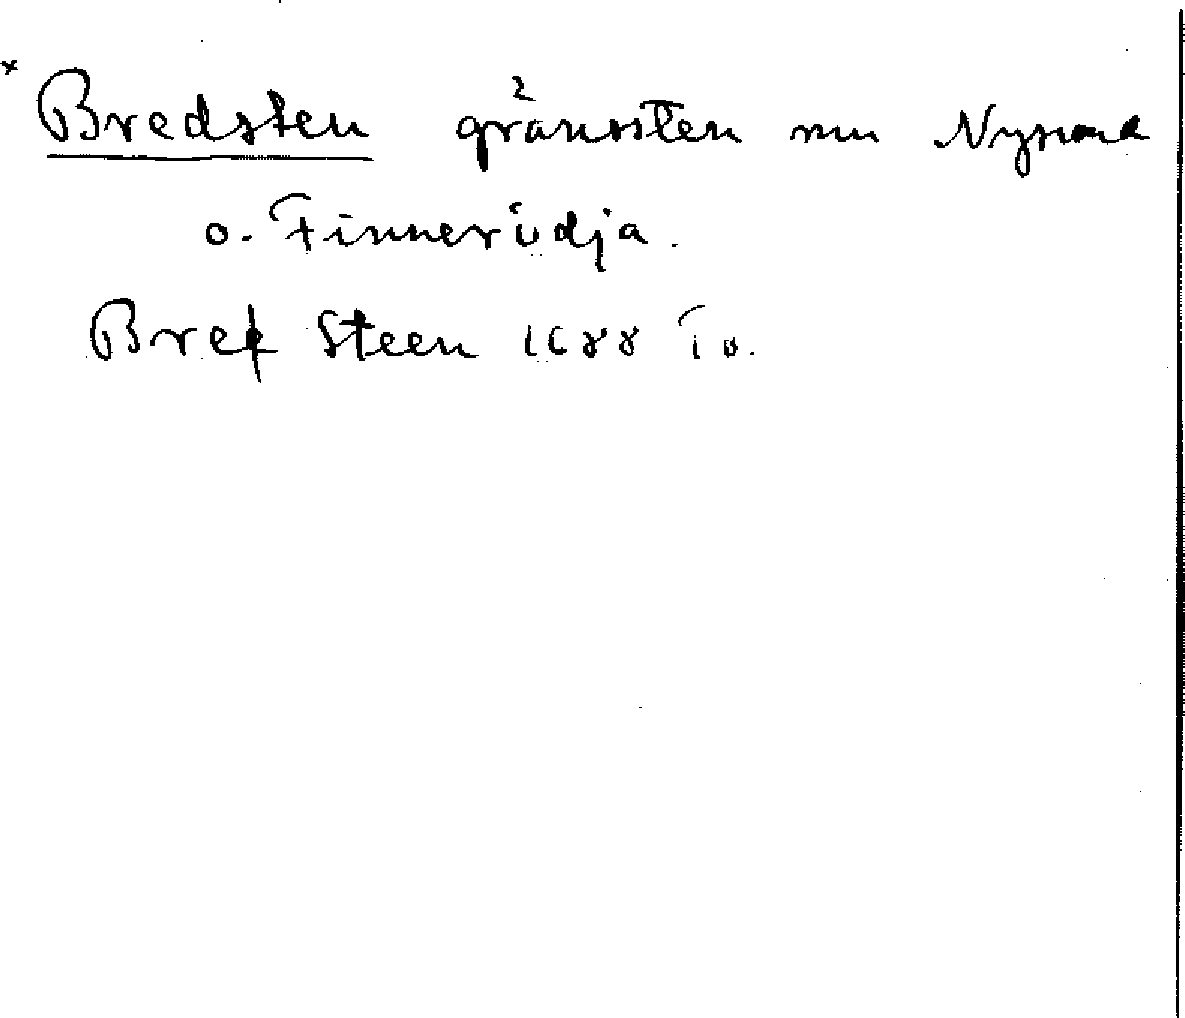 × Bredsten gränssten mm Nysund
o. Finnerödja.
Bref Steen 1688 Tv.